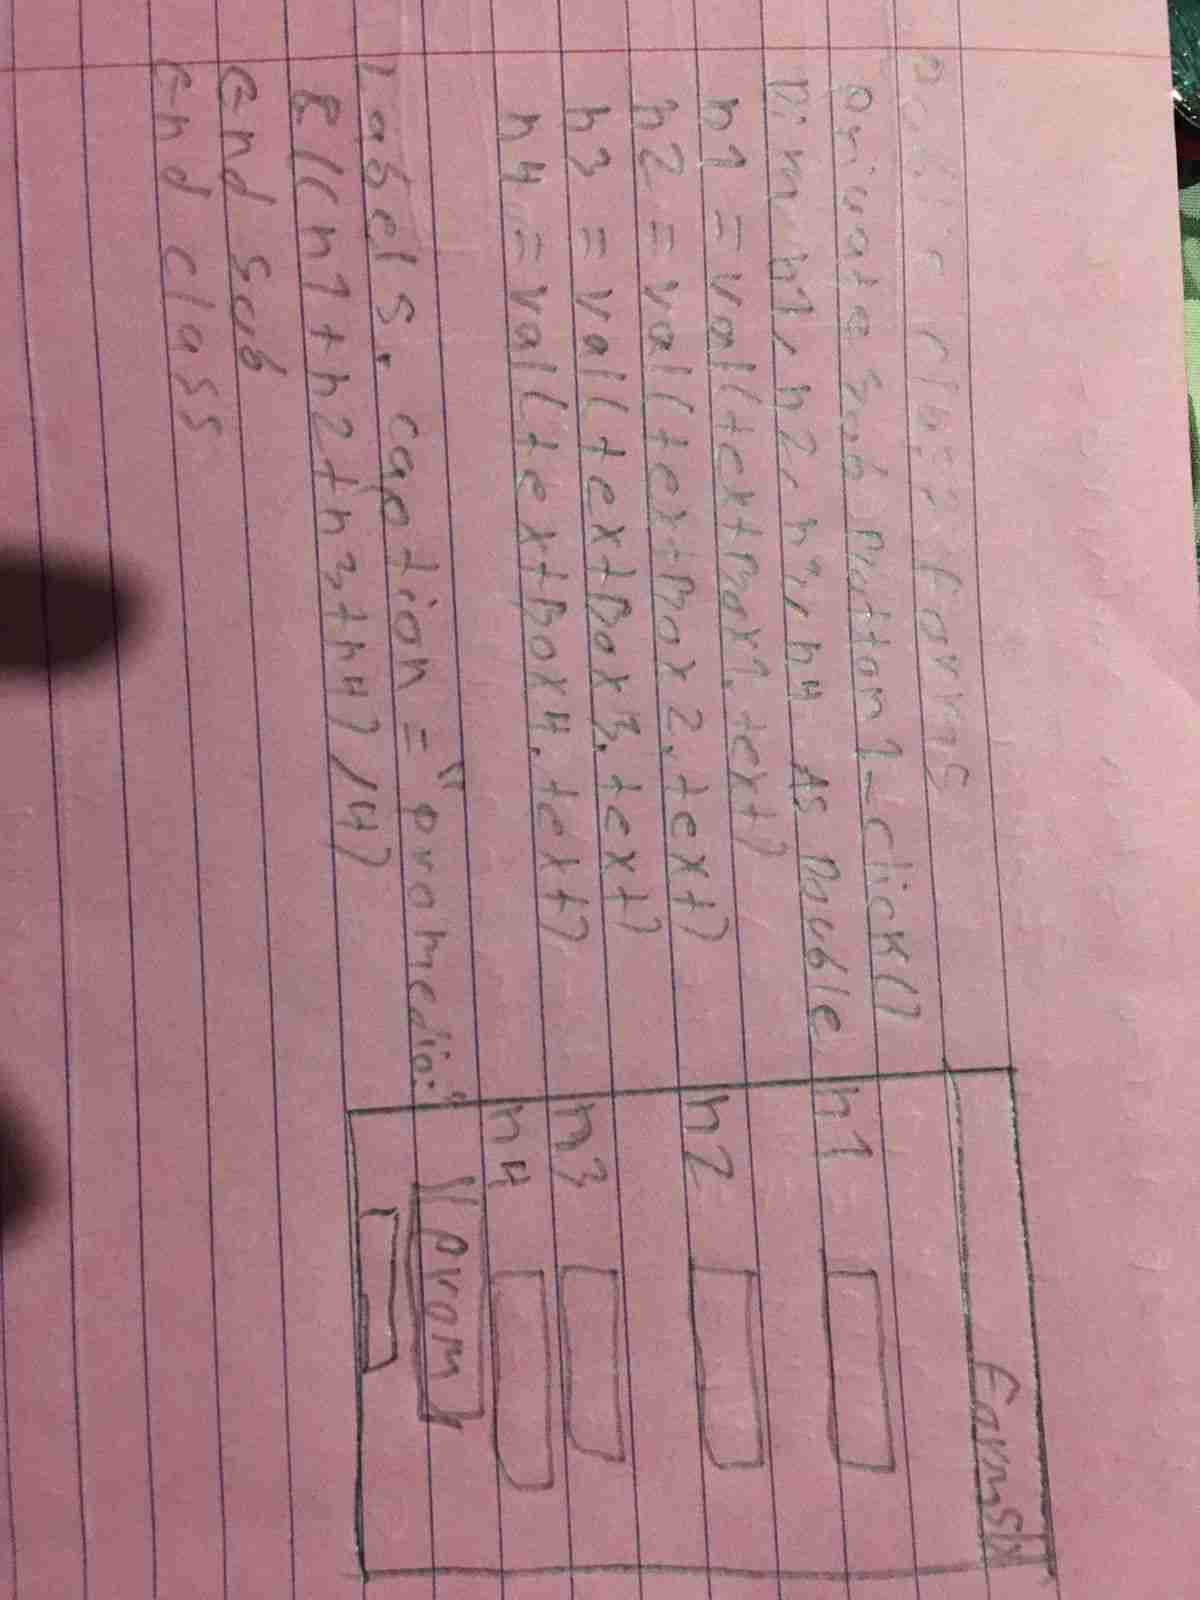 Public class form5
private sub Button1_click()
Dim n1, n2, n3, n4 As Duble
n1 = val(textBox1.text)
n2 = val(textBox2.text)
n3 = val(textBox3.text)
n4 = val(textBox4.text)
label5.caption = "promedio:"
&((n1+n2+n3+n4)/4)
End sub
End class
Form5 X
n1
n2
n3
n4
prom